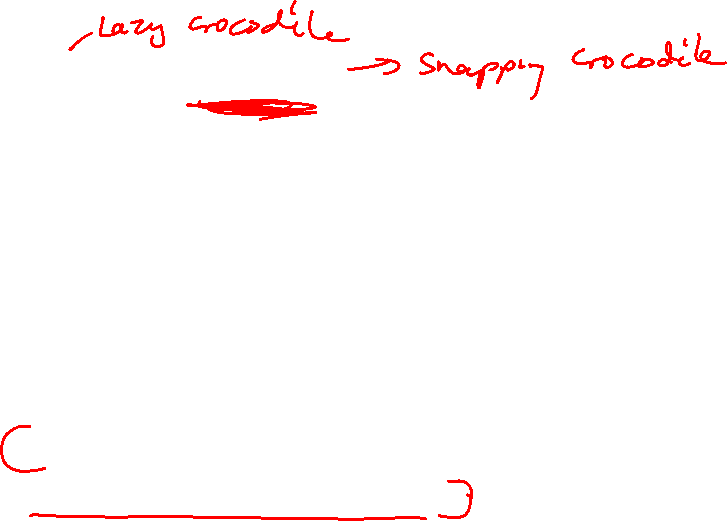 Lazy crocodile
→ Snappy crocodile